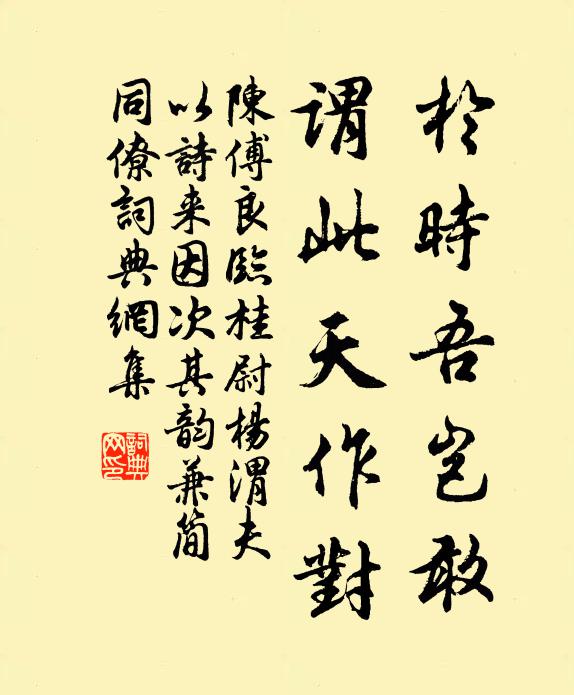 於時吾豈敢
謂此天作對
陳傅良臨桂尉楊渭夫
以詩来因次其韵兼简
同僚詞典網集
詞典
网印